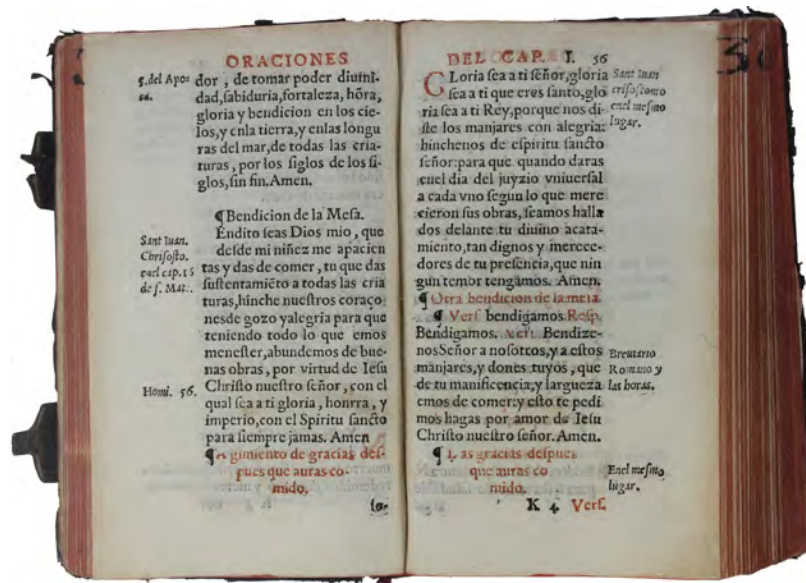 ORACIONES
5. del Apo=
ca.
dor, de tomar poder diuini-
dad, ſabiduria, fortaleza, hõra,
gloria y bendicion en los cie-
los, y enla tierra, y enlas longu
ras del mar, de todas las cria-
turas, por los ſiglos de los ſi-
glos, ſin fin. Amen.
¶Bendicion de la Meſa.
Sant Iuan.
Chriſoſto.
enel cap. 16
de ſ. Mat.
Endito ſeas Dios mio, que
deſde mi niñez me apacien
tas y das de comer, tu que das
ſuſtentamiẽto a todas las cria
turas, hinche nueſtros coraço
nes de gozo y alegria para que
teniendo todo lo que emos
meneſter, abundemos de bue-
nas obras, por virtud de Ieſu
Homi. 56.
Chriſto nueſtro ſeñor, con el
qual ſea a ti gloria, honrra, y
imperio, con el Spiritu ſancto
para ſiempre jamas. Amen
¶ gimiento de gracias deſ-
pues que auras co-
mido.
DEL CAP. I. 56
GLoria ſea a ti ſeñor, gloria
ſea a ti que eres ſanto, glo
ria ſea a ti Rey, porque nos di-
ſte los manjares con alegria:
Sant Iuan
criſoſtomo
enel meſmo
lugar.
hinchenos de eſpiritu ſancto
ſeñor: para que quando daras
enel dia del juyzio vniuerſal
a cada vno ſegun lo que mere
cieron ſus obras, ſeamos halla
dos delante tu diuino acata-
miento, tan dignos y merece-
dores de tu preſencia, que nin
gun temor tengamos. Amen.
¶ Otra bendicion de la meſa.
¶ Verſ bendigamos Reſp.
Bendigamos. Verſ. Bendize-
nos Señor a noſotros, y a eſtos
manjares, y dones tuyos, que
de tu manificencia, y largueza
Breuiario
Romano y
las horas.
emos de comer: y eſto te pedi
mos hagas por amor de Ieſu
Chriſto nueſtro ſeñor. Amen.
¶ Las gracias deſpues
que auras co
mido.
Enel meſmo
lugar.
K 4 Verſ.